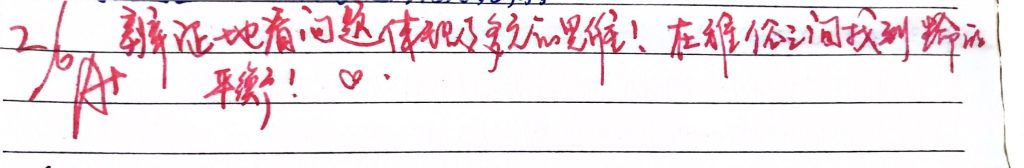 2/6 辩证地看问题体现了多元的思维！在雅俗之间找到
A+ 平衡！